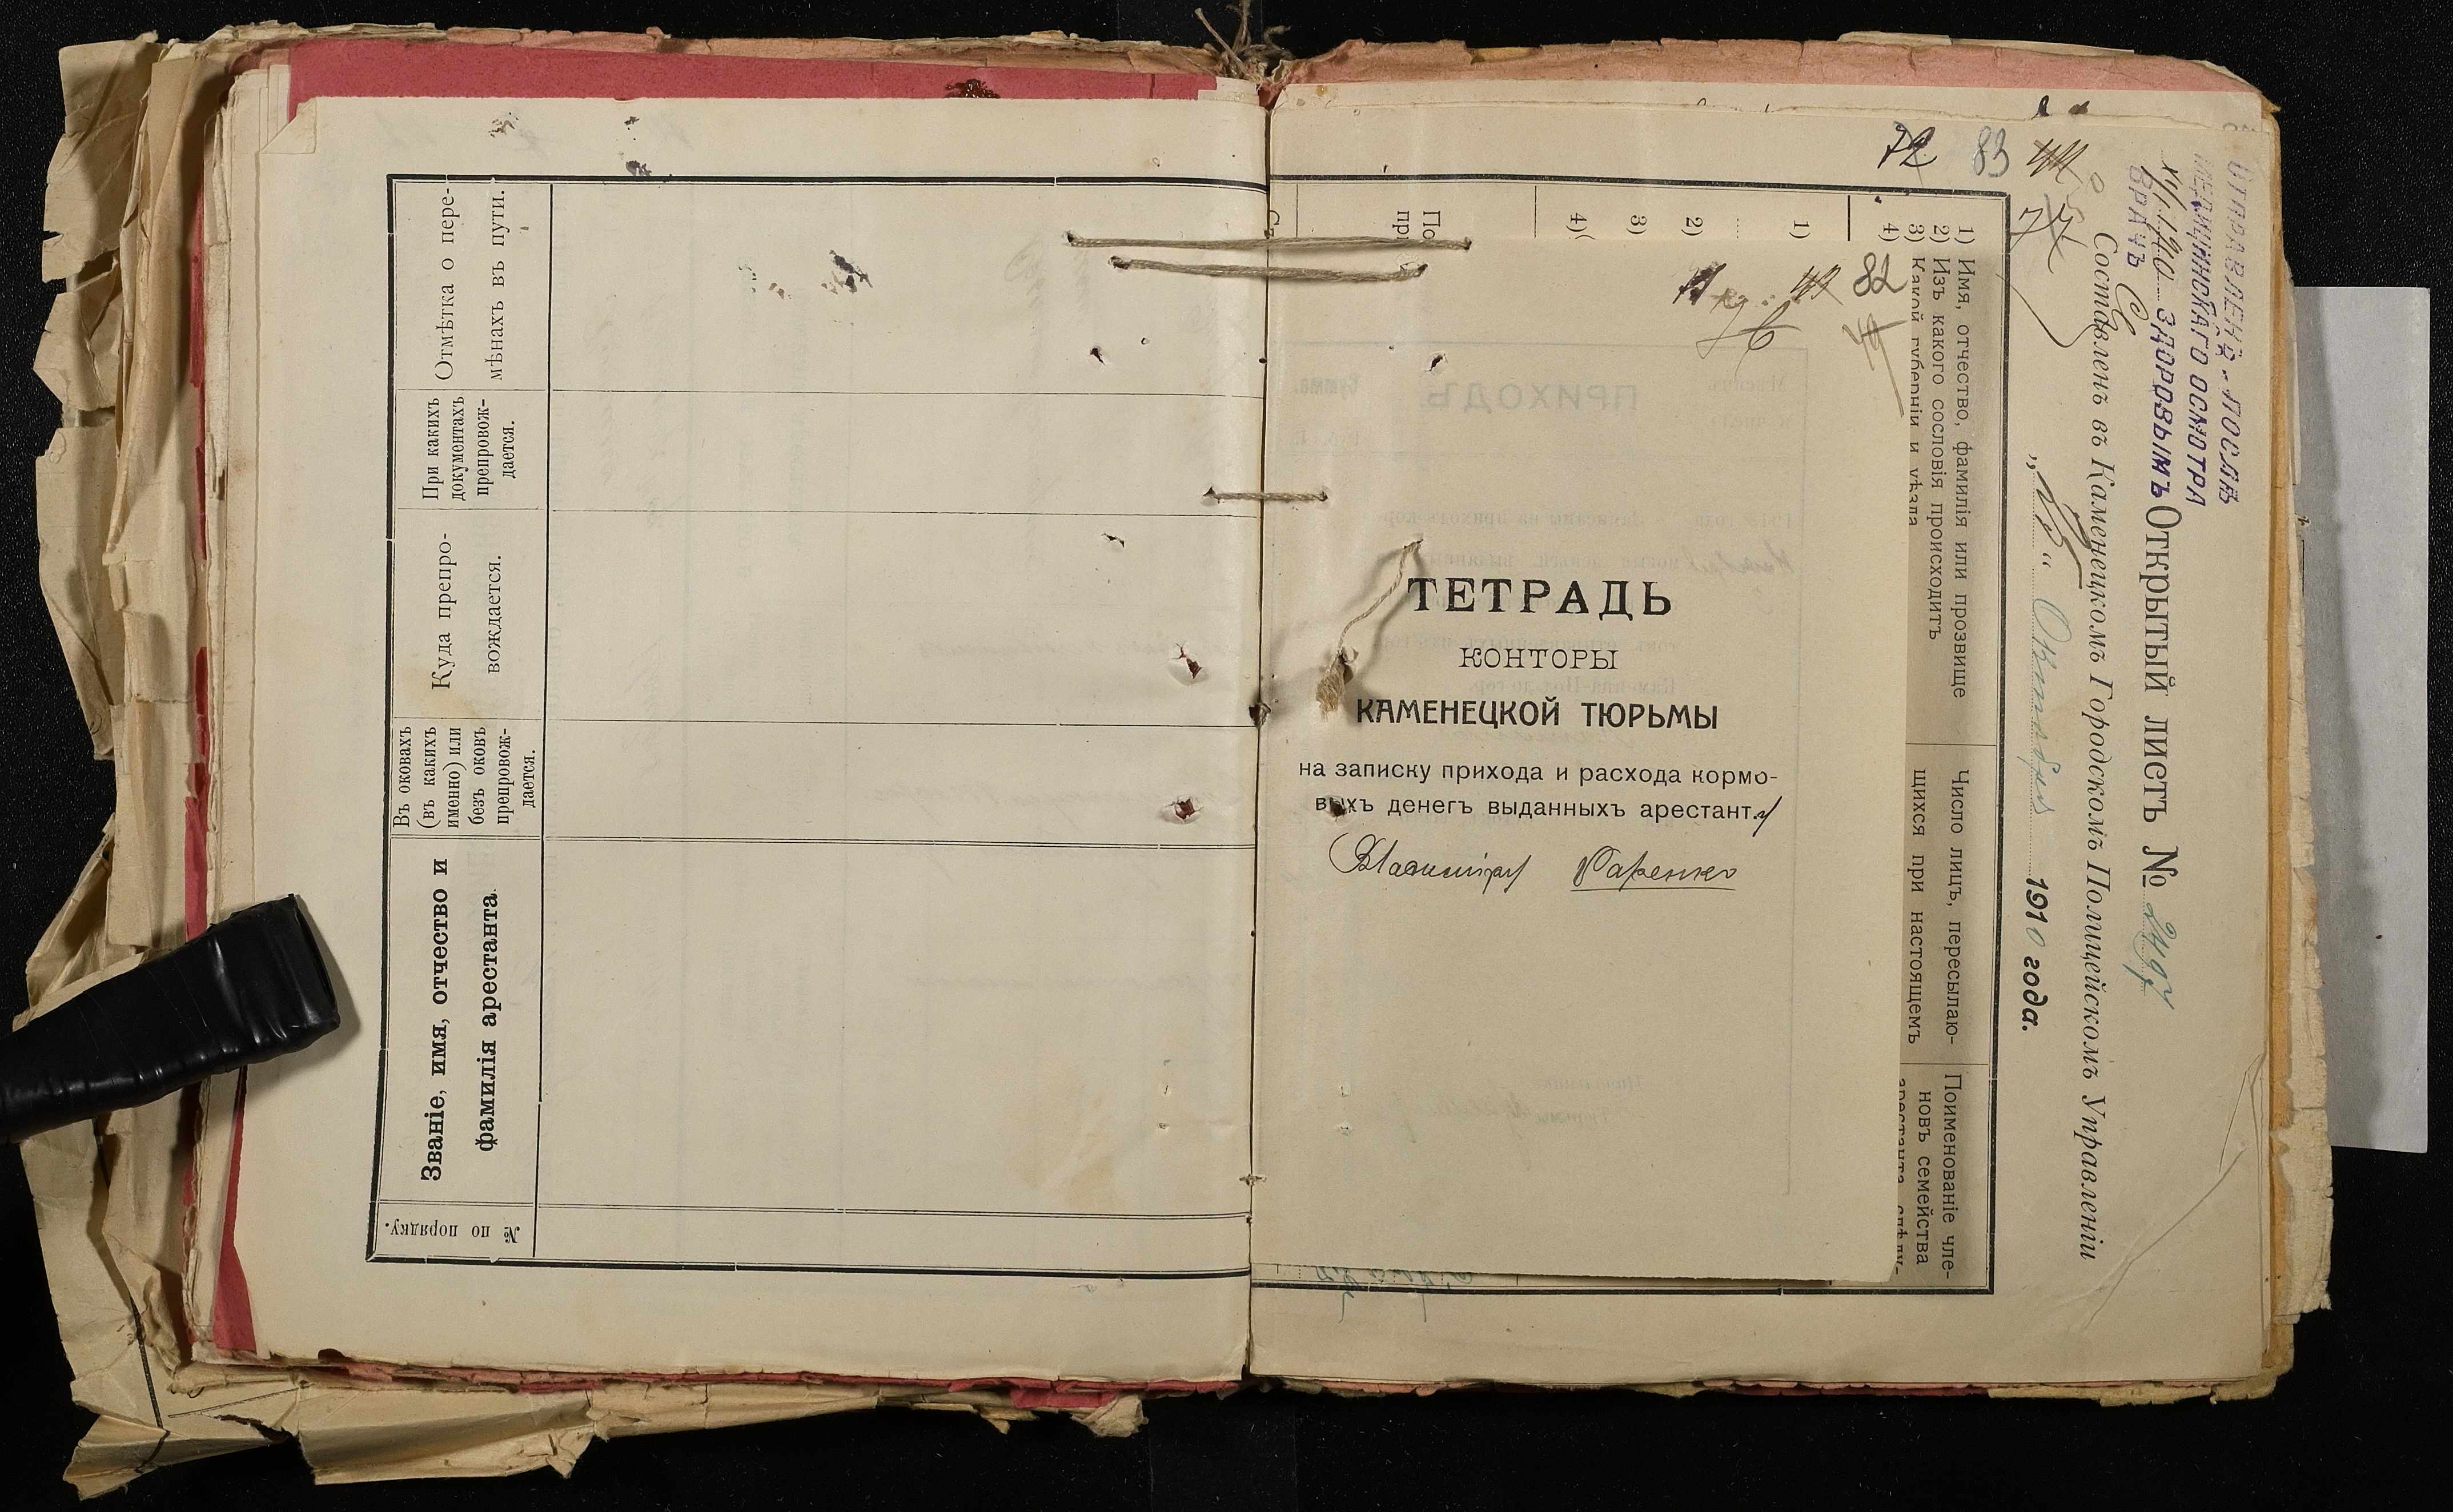 Отмѣтка о пере-
мѣнахъ въ пути.
При какихъ
документахъ
препровож-
дается.
Куда препро-
вождается.
Въ оковахъ
(въ какихъ
именно) или
безъ оковъ
препровож-
дается.
Званіе, имя, отчество и
фамилія арестанта.
№ по порядку.
82
ТЕТРАДЬ
КОНТОРЫ
КАМЕНЕЦКОЙ ТЮРЬМЫ
на записку прихода и расхода кормо-
выхъ денегъ выданныхъ арестанту
Владиміру
По
пр
4)
3)
2)
1)
72 83
ОТПРАВЛЕНЪ ПОСЛѢ
МЕДИЦИНСКАГО ОСМОТРА
ЗДОРОВЫМЪ
ВРАЧЪ
Открытый листъ №
Составленъ въ Каменецкомъ Городскомъ Полицейскомъ Управленіи
„ “ Октября 1910 года.
1) Имя, отчество, фамилія или прозвище
2) Изъ какого сословія происходитъ
3) Какой губерніи и уѣзда
4)
Число лицъ, пересылаю-
щихся при настоящемъ
Поименованіе чле-
новъ семейства